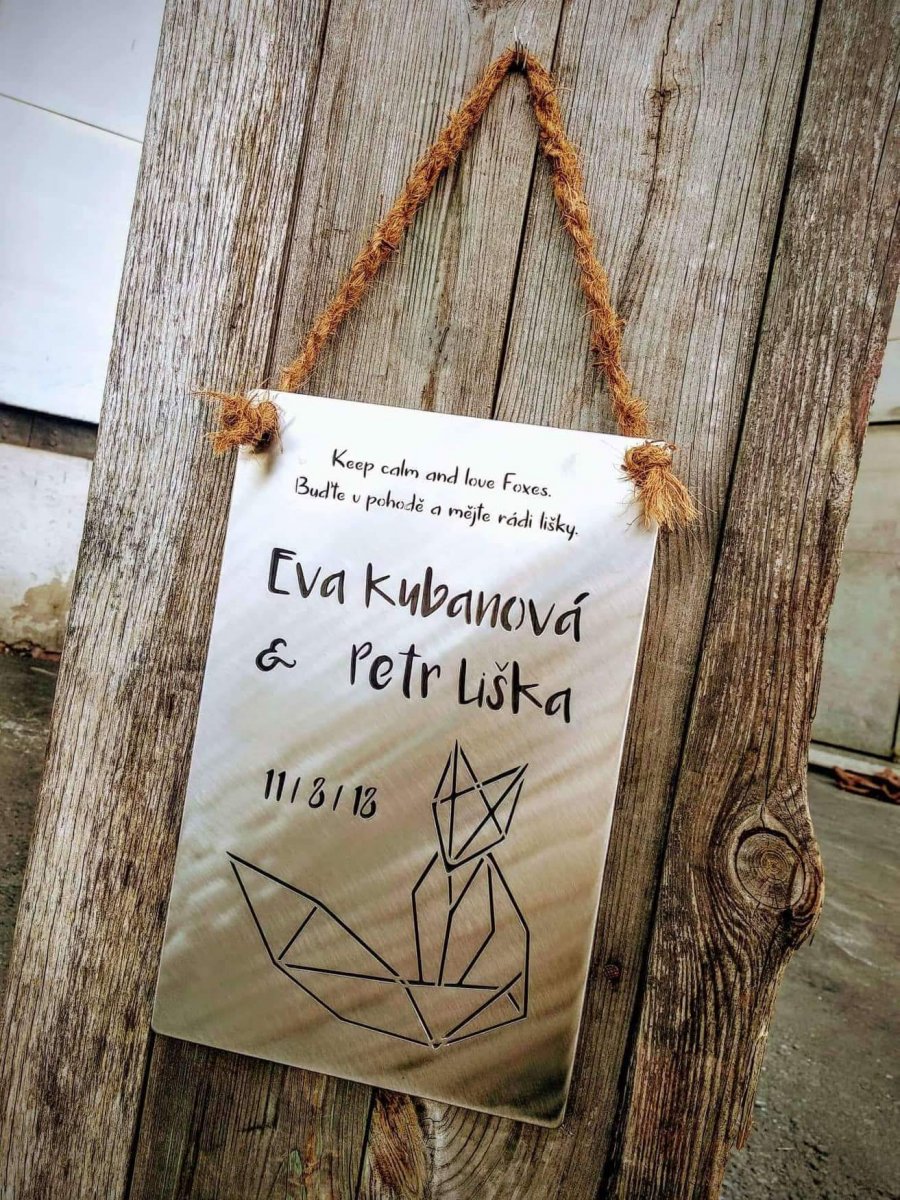 Keep calm and love Foxes.
Buďte v pohodě a mějte rádi lišky.
Eva Kubanová
& Petr Liška
11/8/18